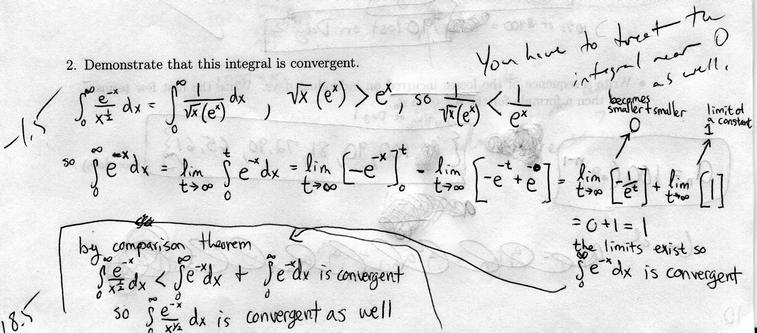 You have to treat the
integral near 0
as well.
2. Demonstrate that this integral is convergent.
-1.5
∫₀^∞ e^-x / x^½ dx = ∫₀^∞ 1 / √x (e^x) dx , √x (e^x) > e^x, so 1 / √x(e^x) < 1 / e^x
becomes smaller + smaller
0
limit of a constant
1
so ∫₀^∞ e^-x dx = lim t→∞ ∫₀^t e^-x dx = lim t→∞ [-e^-x]₀^t - lim t→∞ [-e^-t + e^-0] = lim t→∞ [-1/e^t] + lim t→∞ [1]
= 0 + 1 = 1
the limits exist so
∫₀^∞ e^-x dx is convergent
by comparison theorem
∫₀^∞ e^-x / x^½ dx < ∫₀^∞ e^-x dx + ∫₀^∞ e^-x dx is convergent
so ∫₀^∞ e^-x / x^½ dx is convergent as well
18.5